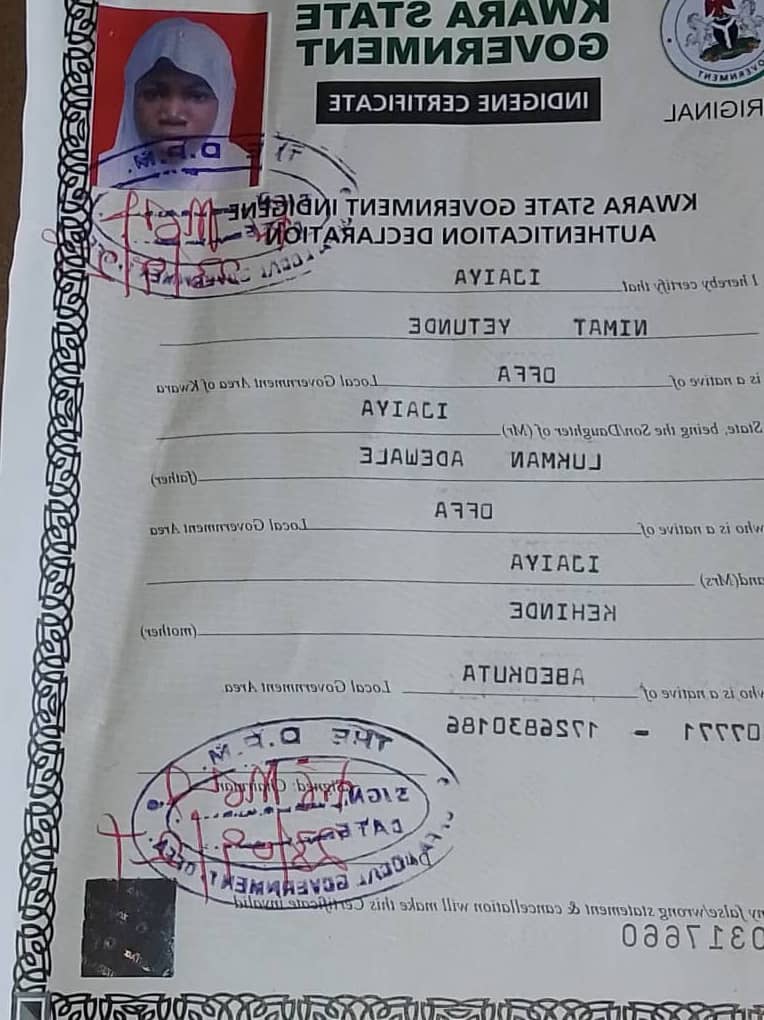 KWARA STATE
GOVERNMENT
RIGINAL
INDIGENE CERTIFICATE
KWARA STATE GOVERNMENT INDIGENE
AUTHENTICATION DECLARATION
I hereby certify that IJAIYA
NIMAT YETUNDE
is a native of OFFA Local Government Area of Kwara
State, being the Son/Daughter of (Mr) IJAIYA
LUKMAN ADEWALE (father)
who is a native of OFFA Local Government Area
and(Mrs) IJAIYA
KEHINDE (mother)
who is a native of ABEOKUTA Local Government Area
07771 - 1726830186
THE D.P.M.
SIGN
DATE
GOVERNMENT, OFFA.
ny false/wrong statement & cancellation will make this Certificate invalid
0317660